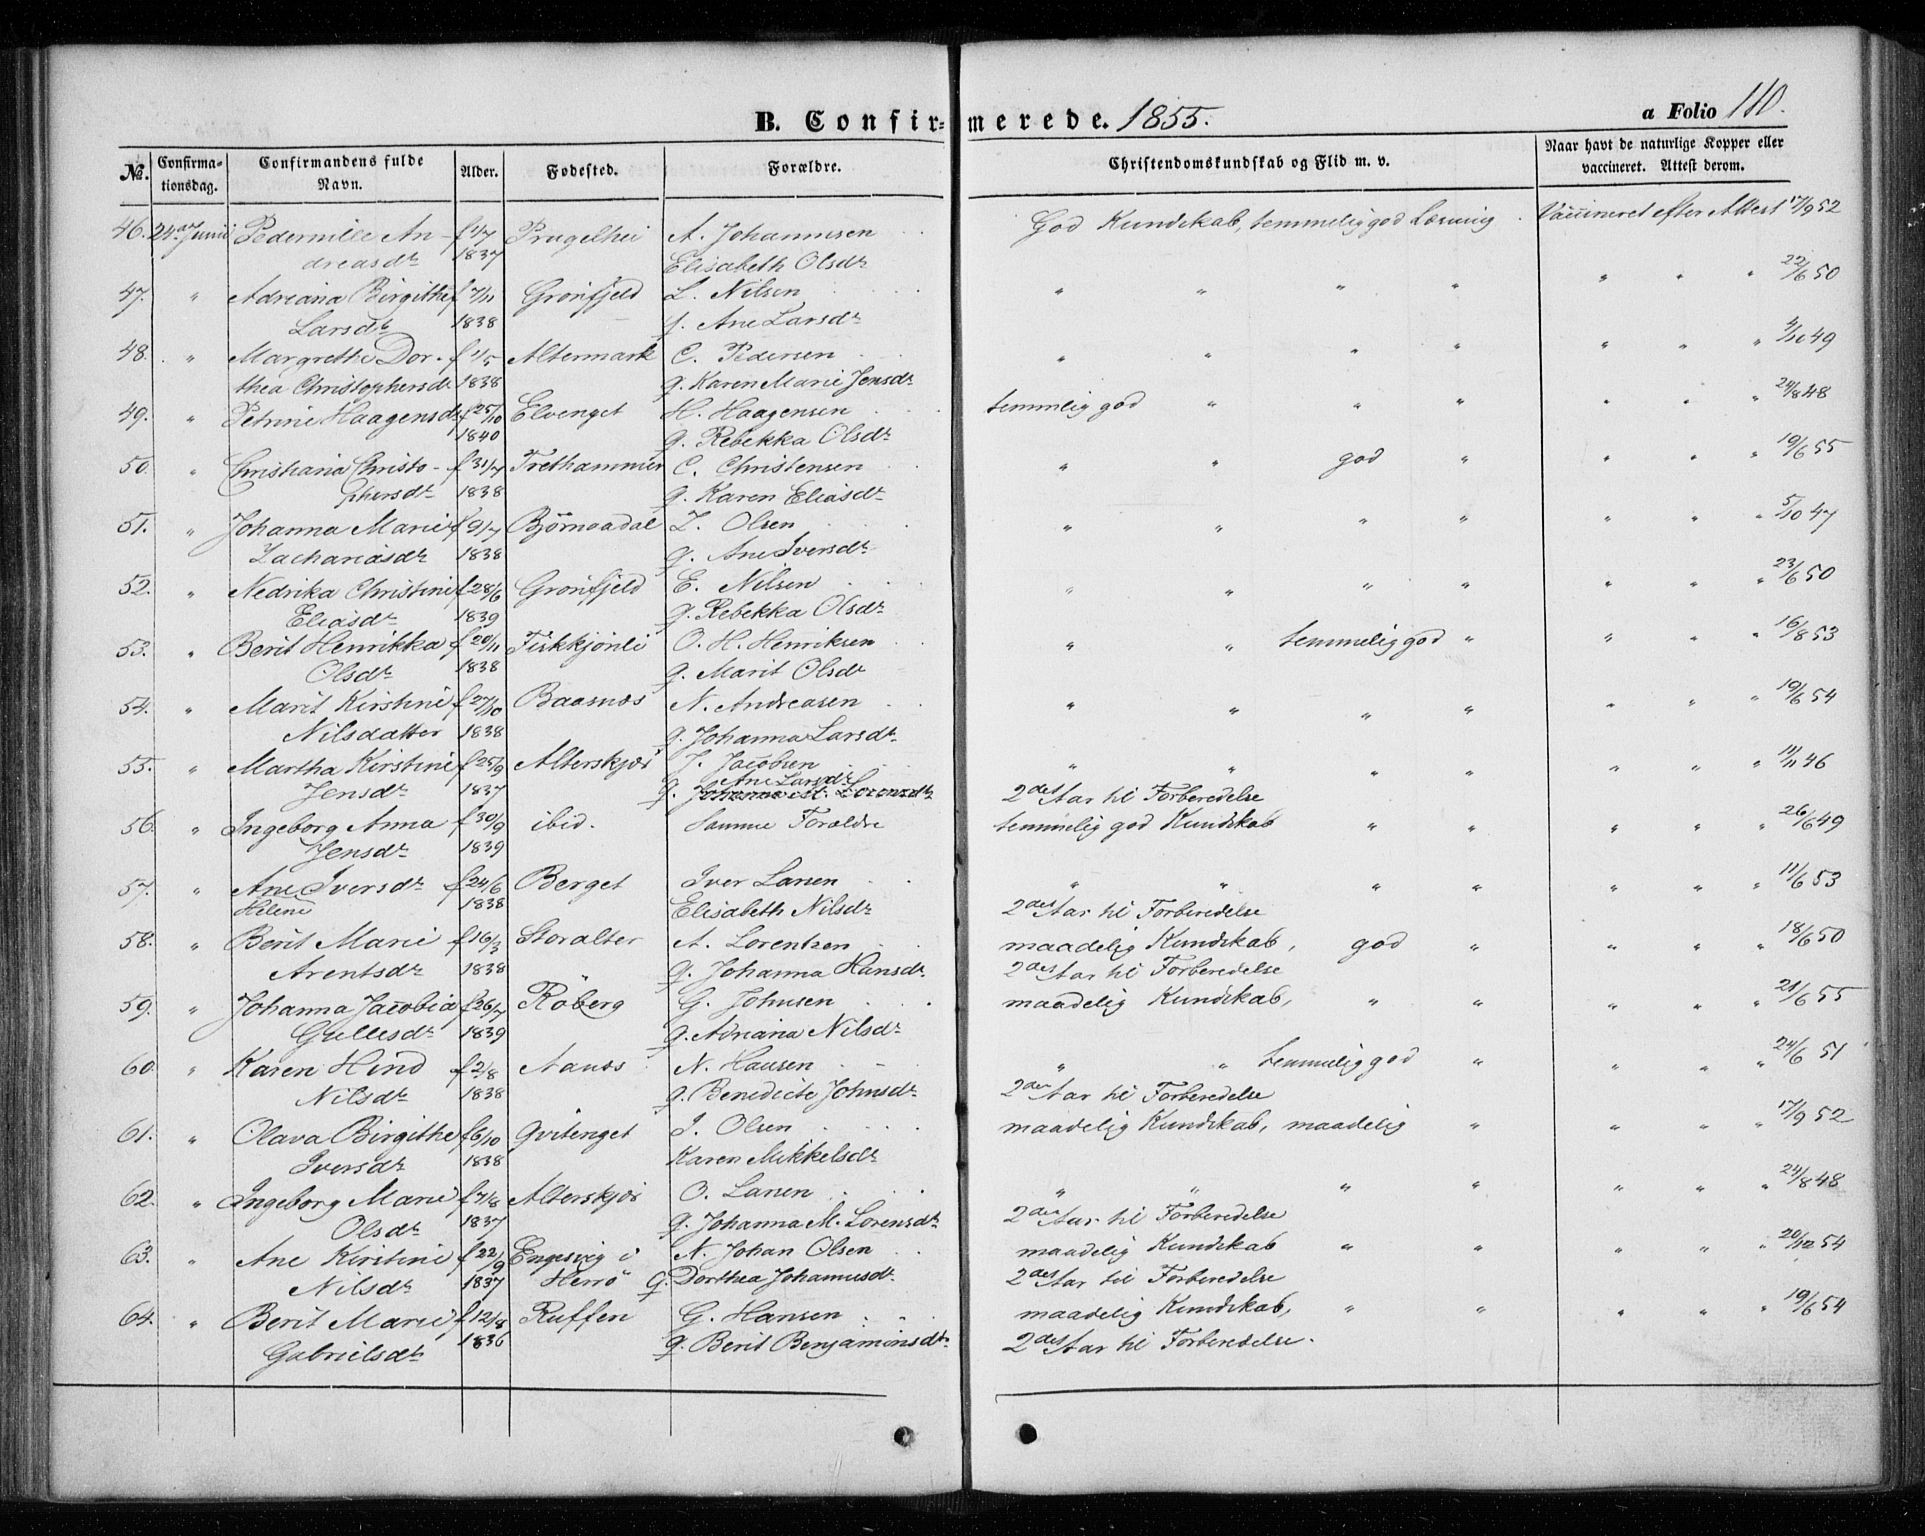 B. Confirmerede. 1855. a Folio 110.
№. Confirmationsdag. Confirmandens fulde Navn. Alder. Fødested. Forældre. Christendomskundskab og Flid m. v. Naar havt de naturlige Kopper eller vaccineret. Attest derom.
46. 24de Junii Pedernille An- f 1/7 Prugelhei A. Johannesen God Kundskab, temmelig god Læsning Vaccineret efter Attest 17/9 52
dreasdr 1837 Elisabeth Olsdr
47. " Adriana Birgithe f 7/11 Grønfjeld L. Nilsen " " " " " " " 22/6 50
Larsdr 1838 g. Ane Larsdr
48. " Margrethe Dor- f 1/5 Altermark C. Pedersen " " " " " " " 4/10 49
thea Christophersdr 1838 g. Karen Marie Jensdr
49. " Petrine Haagensdr f 25/10 Elvenget H. Haagensen temmelig god " " " " " " 24/8 48
1840 g. Rebekka Olsdr
50. " Christiana Christo- f 31/7 Trethammer C. Christensen " " god " " " " 19/6 55
phersdr 1838 g. Karen Eliasdr
51. " Johanna Marie f 9/7 Bjørnaadal Z. Olsen " " " " " " " 5/10 47
Zachariasdr 1838 g. Ane Iversdr
52. " Nedrika Christine f 28/6 Grønfjeld E. Nilsen " " " " " " " 23/6 50
Eliasdr 1839 g. Rebekka Olsdr
53. " Berit Henrikka f 20/11 Fiskkjønli O. H. Henriksen " " temmelig god " " " " 16/8 53
Olsdr 1838 g. Marit Olsdr
54. " Marit Kirstine f 27/10 Baasnæs N. Andreasen " " " " " " " 19/6 54
Nilsdatter 1838 g. Johanna Larsdr
55. " Martha Kirstine f 25/9 Alterskjær J. Jacobsen " " " " " " " 11/11 46
Ane Larsdr
Jensdr 1837 g. Johanna M. Lorenzdr 2det Aar til Forberedelse
56. " Ingeborg Anna f 30/9 ibid. Samme Forældre temmelig god Kundskab " " " " " 26/6 49
Jensdr 1839
57. " Ane Iversdr f 24/6 Berget Iver Larsen " " " " " " " 11/6 53
Helene 1838 Elisabeth Nilsdr 2det Aar til Forberedelse
58. " Berit Marie f 16/3 Storalter A. Lorentzen maadelig Kundskab, god " " " " 18/6 50
Arentsdr 1838 g. Johanna Hansdr 2det Aar til Forberedelse
59. " Johanna Jacobia f 26/7 Røberg G. Johnsen maadelig Kundskab, " " " " " 21/6 55
Gullesdr 1839 g. Adriana Nilsdr
60. " Karen Hind f 2/8 Aanæs N. Hansen " " temmelig god " " " " 24/6 51
Nilsdr 1838 g. Benedicte Johnsdr 2det Aar til Forberedelse
61. " Olava Birgithe f 6/10 Qvitenget I. Olsen maadelig Kundskab, maadelig " " " " 17/9 52
Iversdr 1838 Karen Mikkelsdr
62. " Ingeborg Marie f 7/8 Alterskjær O. Larsen " " " " " " " 24/8 48
Olsdr 1837 g. Johanna M. Lorensdr 2det Aar til Forberedelse
63. " Ane Kirstine f 22/9 Engesvig i N. Johan Olsen maadelig Kundskab " " " " " 20/12 54
Nilsdr 1837 Herrø g. Dorthea Johannesdr 2det Aar til Forberedelse
64. " Berit Marie f 12/8 Ruffen G. Hansen maadelig Kundskab, " " " " " 19/6 54
Gabrielsdr 1836 g. Berit Benjaminsdr 2det Aar til Forberedelse.